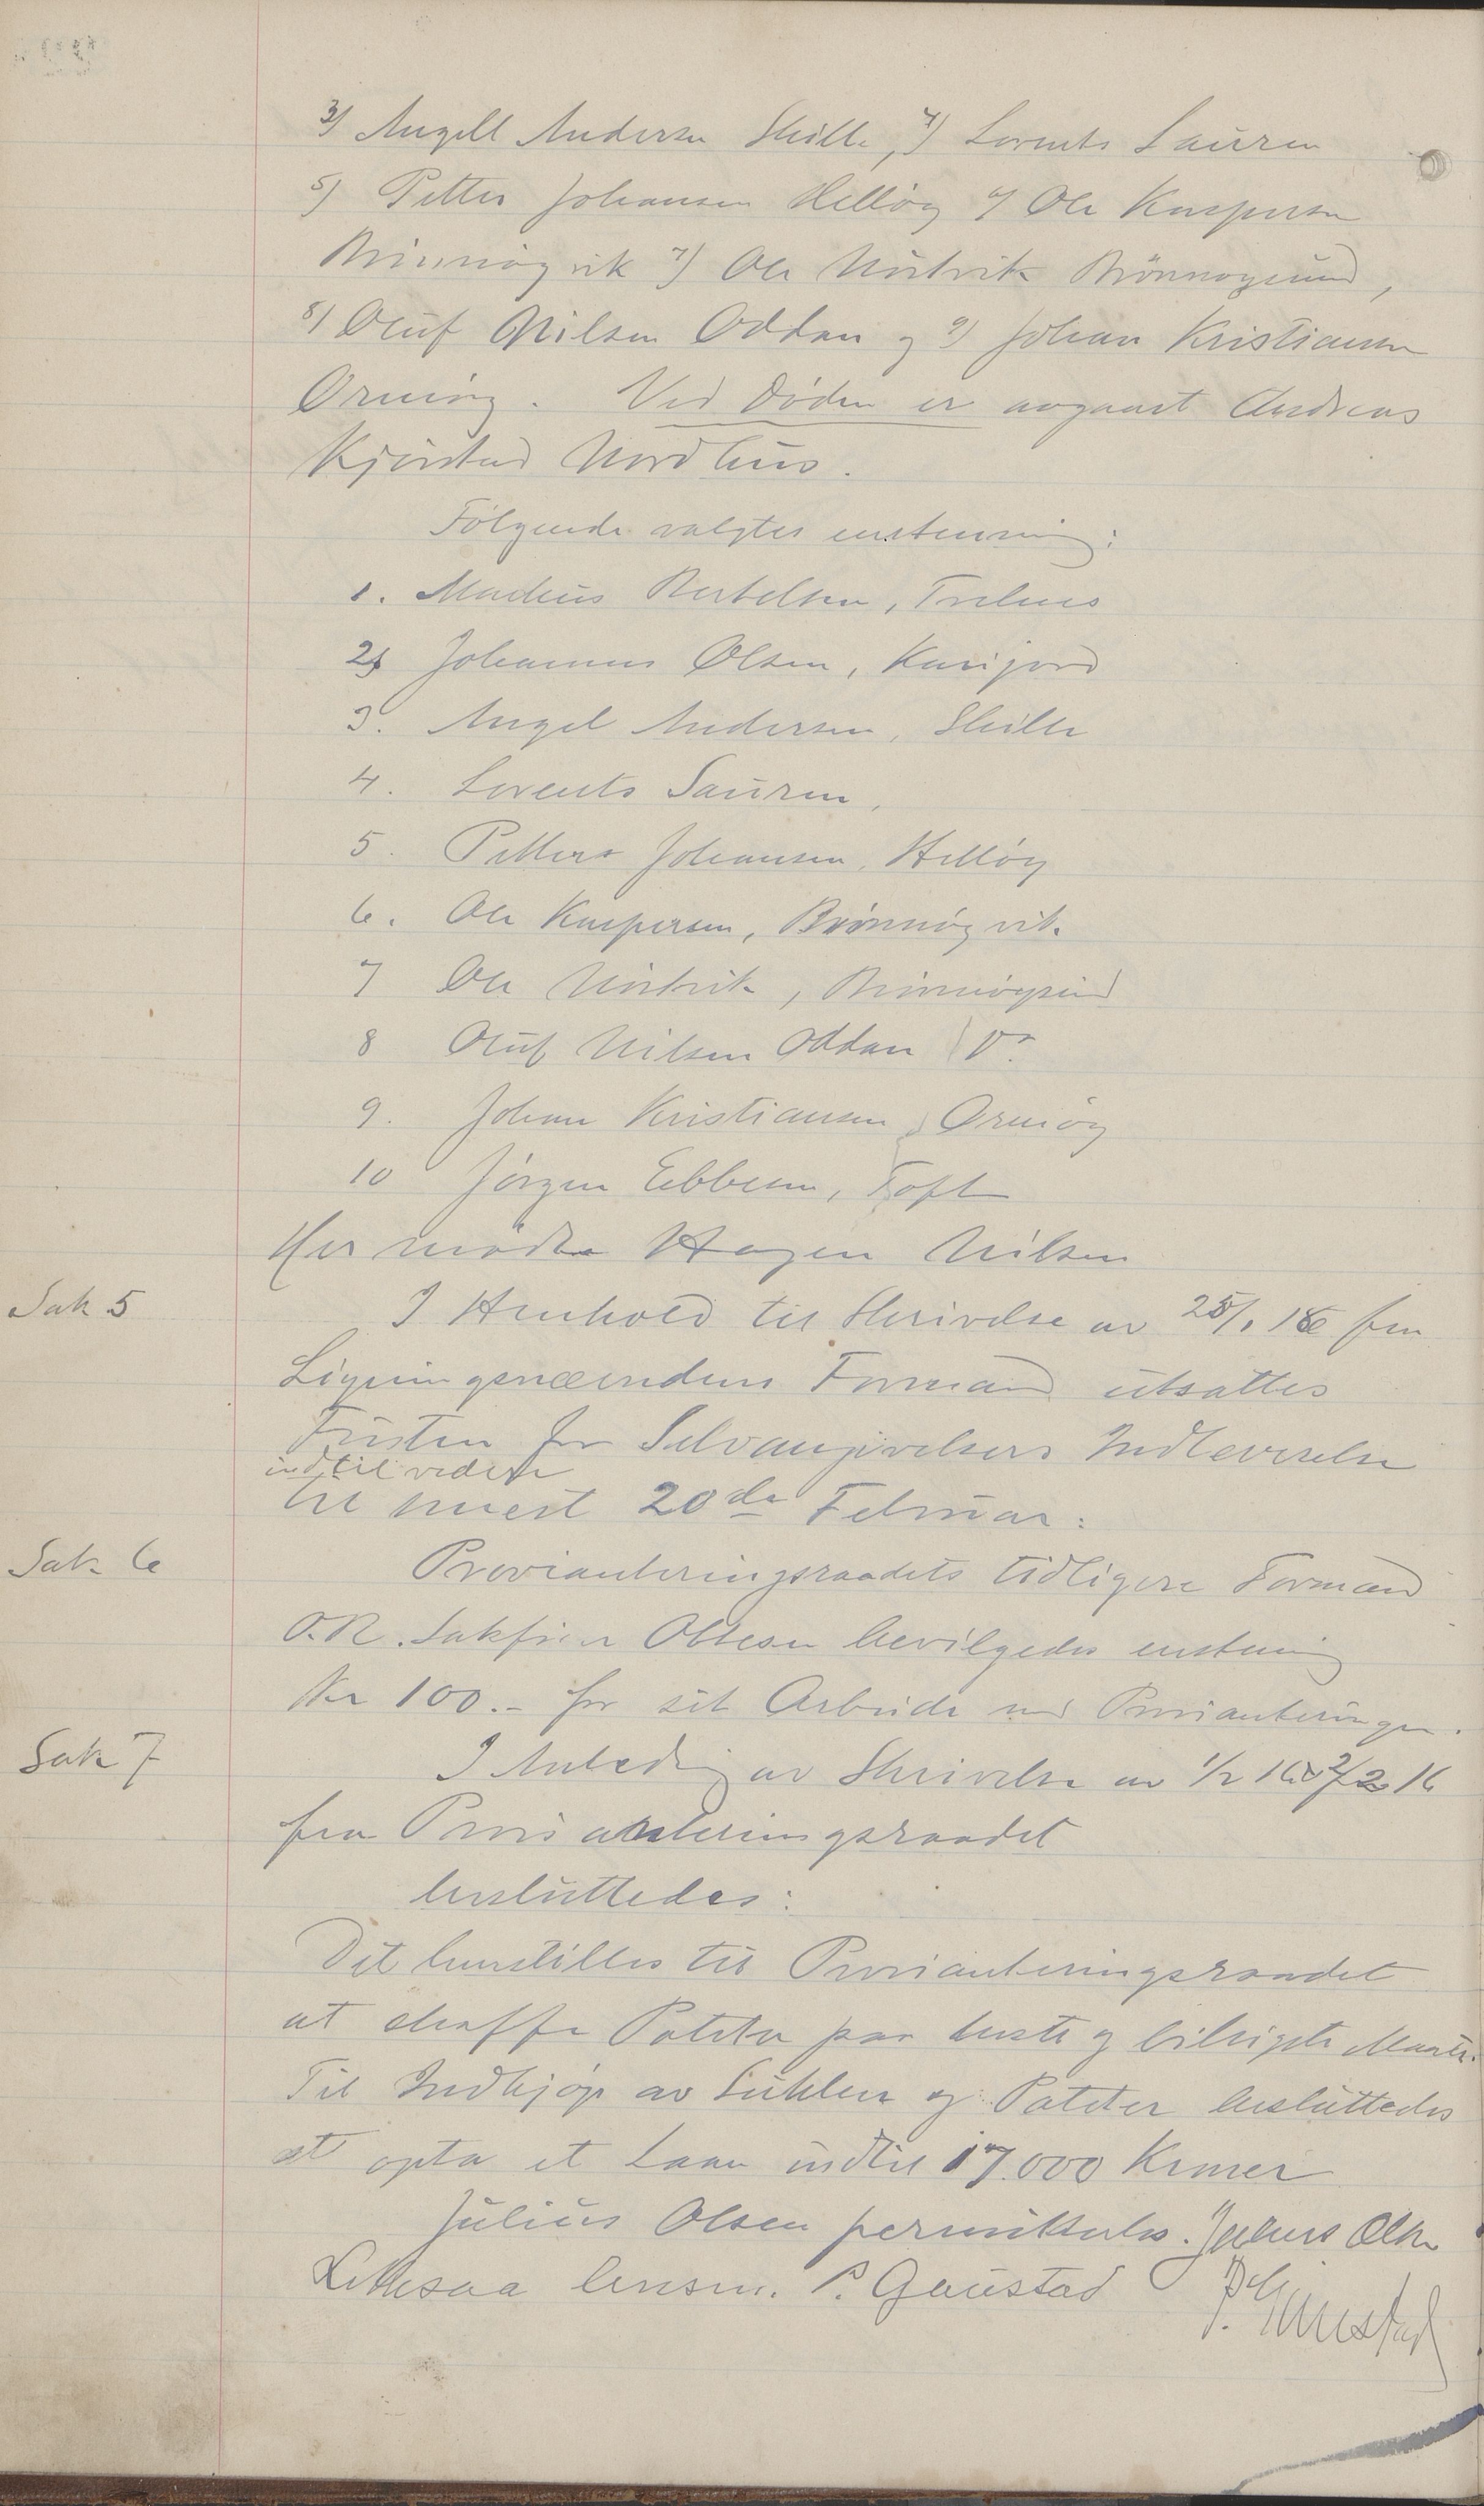 3) Angell Andersen Skille, 4) Lorents Sauren
5) Petter Johansen Helløy 6) Ole Kaspersen
Brønnøyvik 7) Ole Urstvik Brønnøysund,
8) Oluf Nilsen Oddan og 9) Johan Kristiansen
Ormøy. Ved Døden er avgaaet Andreas
Kjørstad Nordhus.
Følgende valgtes enstemmig:
1. Markus Bertelsen, Trælnes
2. Johannes Olsen, Karijord
3. Angel Andersen, Skille
4. Lorents Sauren,
5. Petter Johansen, Helløy
6. Ole Kaspersen, Brønnøyvik.
7 Ole Urstvik, Brønnøysund
8 Oluf Nilsen Oddan
9. Johan Kristiansen, Ormøy
10 Jørgen Ebbesen, Toft
Her mødte Hagen Nilsen
Sak 5 I Henhold til Skrivelse av 25/1 16 fra
Ligningsnævndens Formand utsattes
Fristen for Selvangivelsers Indleverelse
indtil videre
til næst 20de Februar.
Sak 6 Provianteringsraadets tidligere Formand
O.R. Sakfører Ottesen bevilgedes enstemmig
Kr 100.- for sit Arbeide med Provianteringen.
Sak 7 I Anledning av Skrivelse av 1/2 16 2/2 16
fra Provianteringsraadet
besluttedes:
Det henstilles til Provianteringsraadet
at skaffe Poteter paa beste og billigste Maate.
Til Indkjøp av Sukker og Poteter besluttedes
at opta et Laan indtil 17.000 Kroner
Julius Olsen permitteredes. Julius Olsen
P. Gaustad P. Gaustad